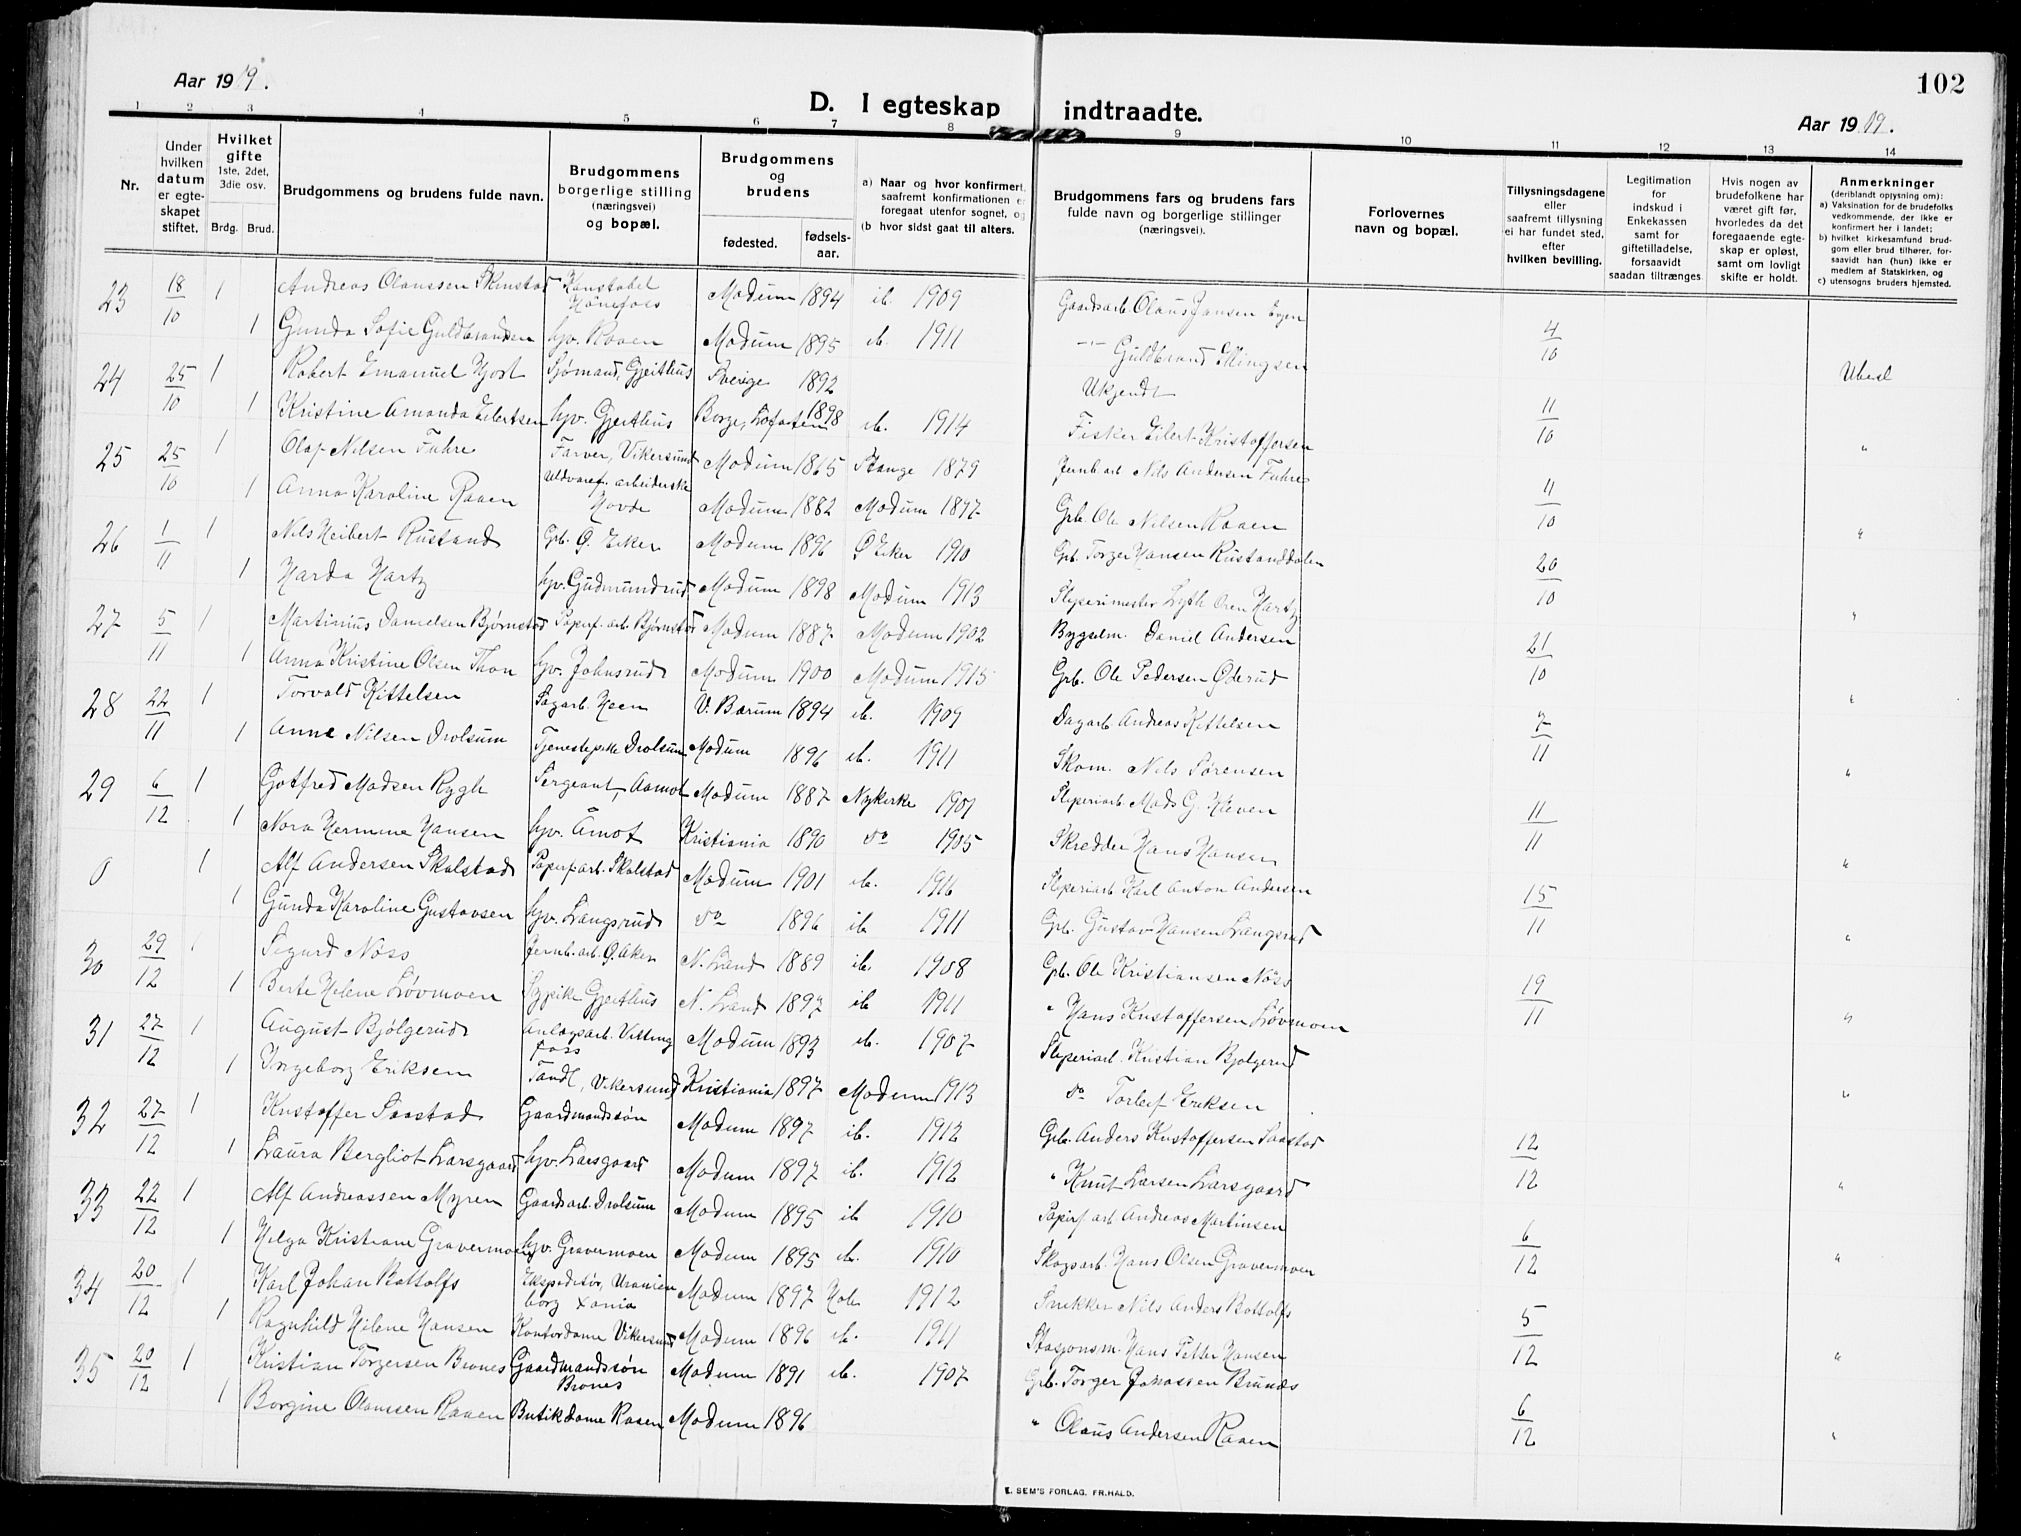 Aar 1919.
D. I egteskap indtraadte.
102
Aar 1919.
1 2 3 4 5 6 7 8 9 10 11 12 13 14
Nr.
Under hvilken datum er egteskapet stiftet.
Hvilket gifte 1ste, 2det, 3die osv.
Brdg. Brud.
Brudgommens og brudens fulde navn.
Brudgommens borgerlige stilling (næringsvei) og bopæl.
Brudgommens og brudens
fødested. fødselsaar.
a) Naar og hvor konfirmert, saafremt konfirmationen er foregaat utenfor sognet, og
(b hvor sidst gaat til alters.
Brudgommens fars og brudens fars fulde navn og borgerlige stillinger (næringsvei).
Forlovernes navn og bopæl.
Tillysningsdagene eller saafremt tillysning ei har fundet sted, efter hvilken bevilling.
Legitimation for indskud i Enkekassen samt for giftetilladelse, forsaavidt saadan tiltrænges
Hvis nogen av brudefolkene har været gift før, hvorledes da det foregaaende egteskap er opløst, samt om lovligt skifte er holdt.
Anmerkninger (deriblandt opjysning om):
a) Vaksination for de brudefolks vedkommende, der ikke er konfirmert her i landet;
b) hvilket kirkesamfund brudgom eller brud tilhører, forsaavidt han (hun) ikke er medlem af Statskirken, og
c) utensogns bruders hjemsted.
23 18/10 1 Andreas Olaussen Skinstad Konstabel Hönefoss Modum 1894 ib. 1909 Gaardsarb. Olaus Jansen
1 Gunda Sofie Guldbrandsen hv. Raaen Modum 1895 ib. 1911 -"- Guldbrand Mingsen 4/10
24 25/10 1 Robert Emanuel Hjort Sjømand, Gjeithus Sverige 1892 Ukjendt
1 Kristine Amanda Eilertsen hv. Gjeithus Borge, Lofoten 1898 ib. 1914 Fisker Eilert Kristoffersen 11/10
25 25/10 1 Olaf Nilsen Fuhre Farver, Vikersund Modum 1865 Stange 1879 Jernb.arb Nils Andersen Fuhre "
1 Anna Karoline Raaen Uldvaref. arbeiderske Hovde Modum 1882 Modum 1897 Grb. Ole Nilsen Raaen 11/10
26 1/11 1 Nils Heibert Rustand Grb. Ø. Eiker Modum 1896 Ø Eiker 1910 Grb. Torger Hansen Rustanddalen "
1 Harda Hartz hv. Gudmundrud Modum 1898 Modum 1913 Sliperimester Hartz 20/10
27 5/11 1 Martinius Danielsen Bjørnstad Papirf. arb. Bjørnstad Modum 1887 Modum 1902 Bygselm. Daniel Andersen "
1 Anna Kristine Olsen Thon hv. Johnsrud Modum 1900 Modum 1915 Grb. Ole Pedersen Øderud 21/10
28 22/11 1 Torvald Kittelsen Sagarb. Heen V. Bærum 1894 ib. 1909 Dagarb. Andreas Kittelsen "
1 Anne Nilsen Drolsum Tjenestepike Drolsum Modum 1896 ib. 1911 Skom. Nils Sørensen 7/11
29 6/12 1 Gotfred Madsen Rygh Sergeant, Aamot Modum 1887 Nykirke 1901 Sliperiarb. Mads G. Kleven "
1 Nora Hermine Hansen hv. Åmot Kristiania 1890 do 1905 Skredder Hans Hansen 11/11
0 1 Alf Andersen Skalstad Papirfarb. Skalstad Modum 1901 ib. 1916 Sliperiarb Karl Anton Andersen "
1 Gunda Karoline Gustavsen hv. Langsrud do 1896 ib 1911 Grb. Gustav Hansen Langsrud 15/11
30 29/12 1 Sigurd Nöss Jernb. arb. Ø. Aker N. Land 1889 ib. 1908 Grb. Ole Kristiansen Nöss "
1 Berte Helene Lövmoen Sypike Gjeithus N. Land 1897 ib 1911 " Hans Kristoffersen Lövmoen 19/11
31 27/12 1 August Bjölgerud Anlægsarb. Vittingfoss Modum 1893 ib. 1907 Sliperiarb. Kristian Bjölgerud "
1 Ingeborg Eriksen Vikersund Kristiania 1897 Modum 1913 do Torleif Eriksen "
32 27/12 1 Kristoffer Saastad Gaardmandssön Modum 1897 ib. 1912 Grb. Anders Kristoffersen Saastad
1 Laura Bergliot Larsgaard hv. Larsgaard Modum 1897 ib. 1912 " Knut Larsen Larsgaard 12/12 "
33 22/12 1 Alf Andreassen Myren Gaardsarb. Drolsum Modum 1895 ib 1910 Papirf arb Andreas Martinsen
1 Helga Kristiane Gravermoen hv. Gravermoen Modum 1895 ib. 1910 Skogsarb. Hans Olsen Gravermoen 6/12 "
34 20/12 1 Karl Johan Bottolfs Ekspeditör, Uranienborg Xania Modum 1897 1912 Snekker Nils Anders Bottolfs
1 Ragnhild Helene Hansen Kontordame Vikersund Modum 1896 ib. 1911 Stasjonsm. Hans Petter Hansen 5/12 "
35 20/12 1 Kristian Torgersen Brones Gaardmandssön Brones Modum 1891 ib. 1907 Grb. Torger Johassen Brunes
1 Borgine Olaussen Raaen Butikdame Raaen Modum 1896 " Olaus Andersen Raaen 6/12 "
E. SEM'S FORLAG. FR.HALD.